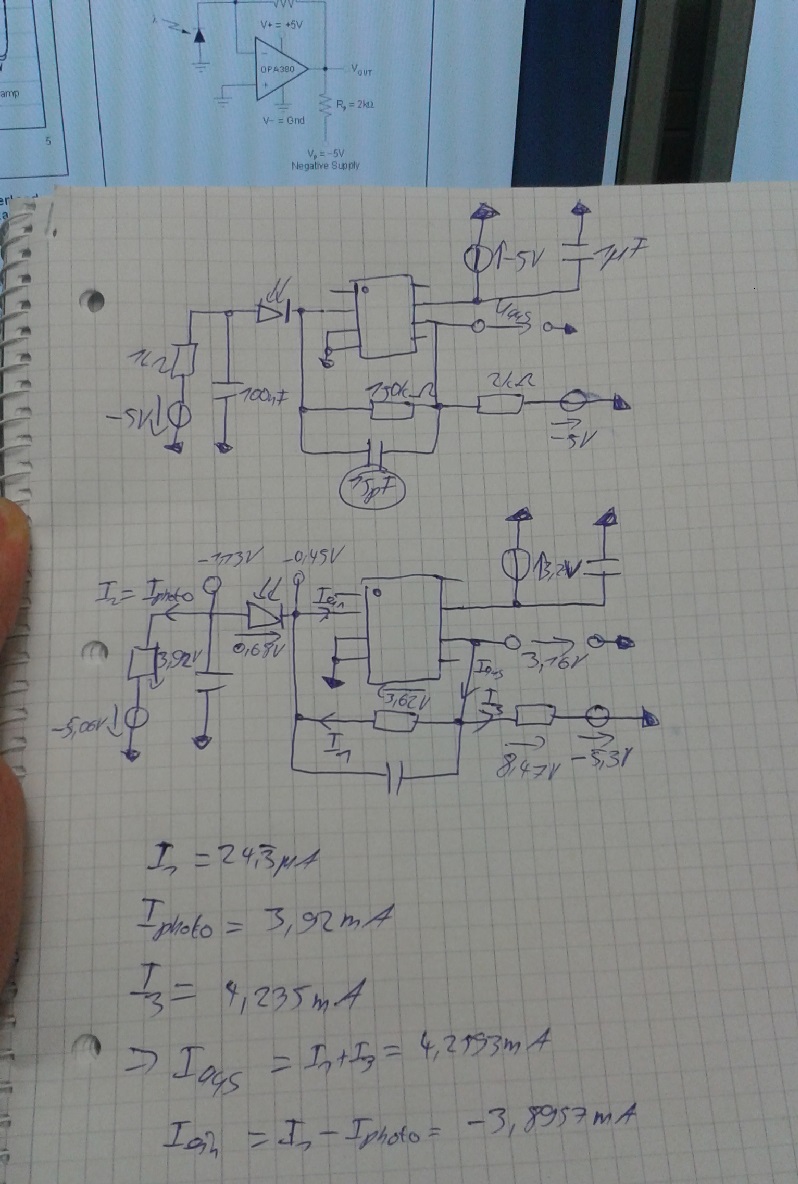 V+ = +5V
OPA380
VOUT
RP = 2kΩ
V- = Gnd
VP = -5V
Negative Supply
amp
5
-5V
1µF
Uaus
1kΩ
100nF
150kΩ
2kΩ
-5V
-5V
15pF
-1,13V
-0,45V
I2 = Iphoto
Iein
3,92V
0,68V
3,16V
Iaus
3,62V
I3
I1
-5,06V
8,47V
-5,3V
I1 = 24,3µA
Iphoto = 3,92mA
I3 = 4,235mA
⇒ Iaus = I1 + I3 = 4,2593mA
Iein = I1 - Iphoto = -3,8957mA